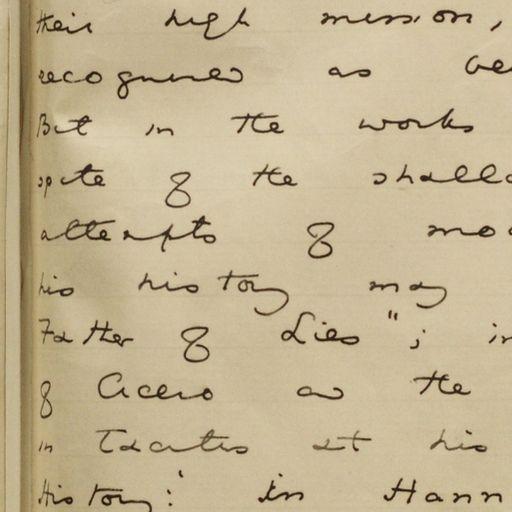 their high mission,
recognised as be
But in the works
spite of the shallo
attempts of mo
his history may
Father of Lies"; in
of Cicero and the
in Tacitus at his
History:' in Hann